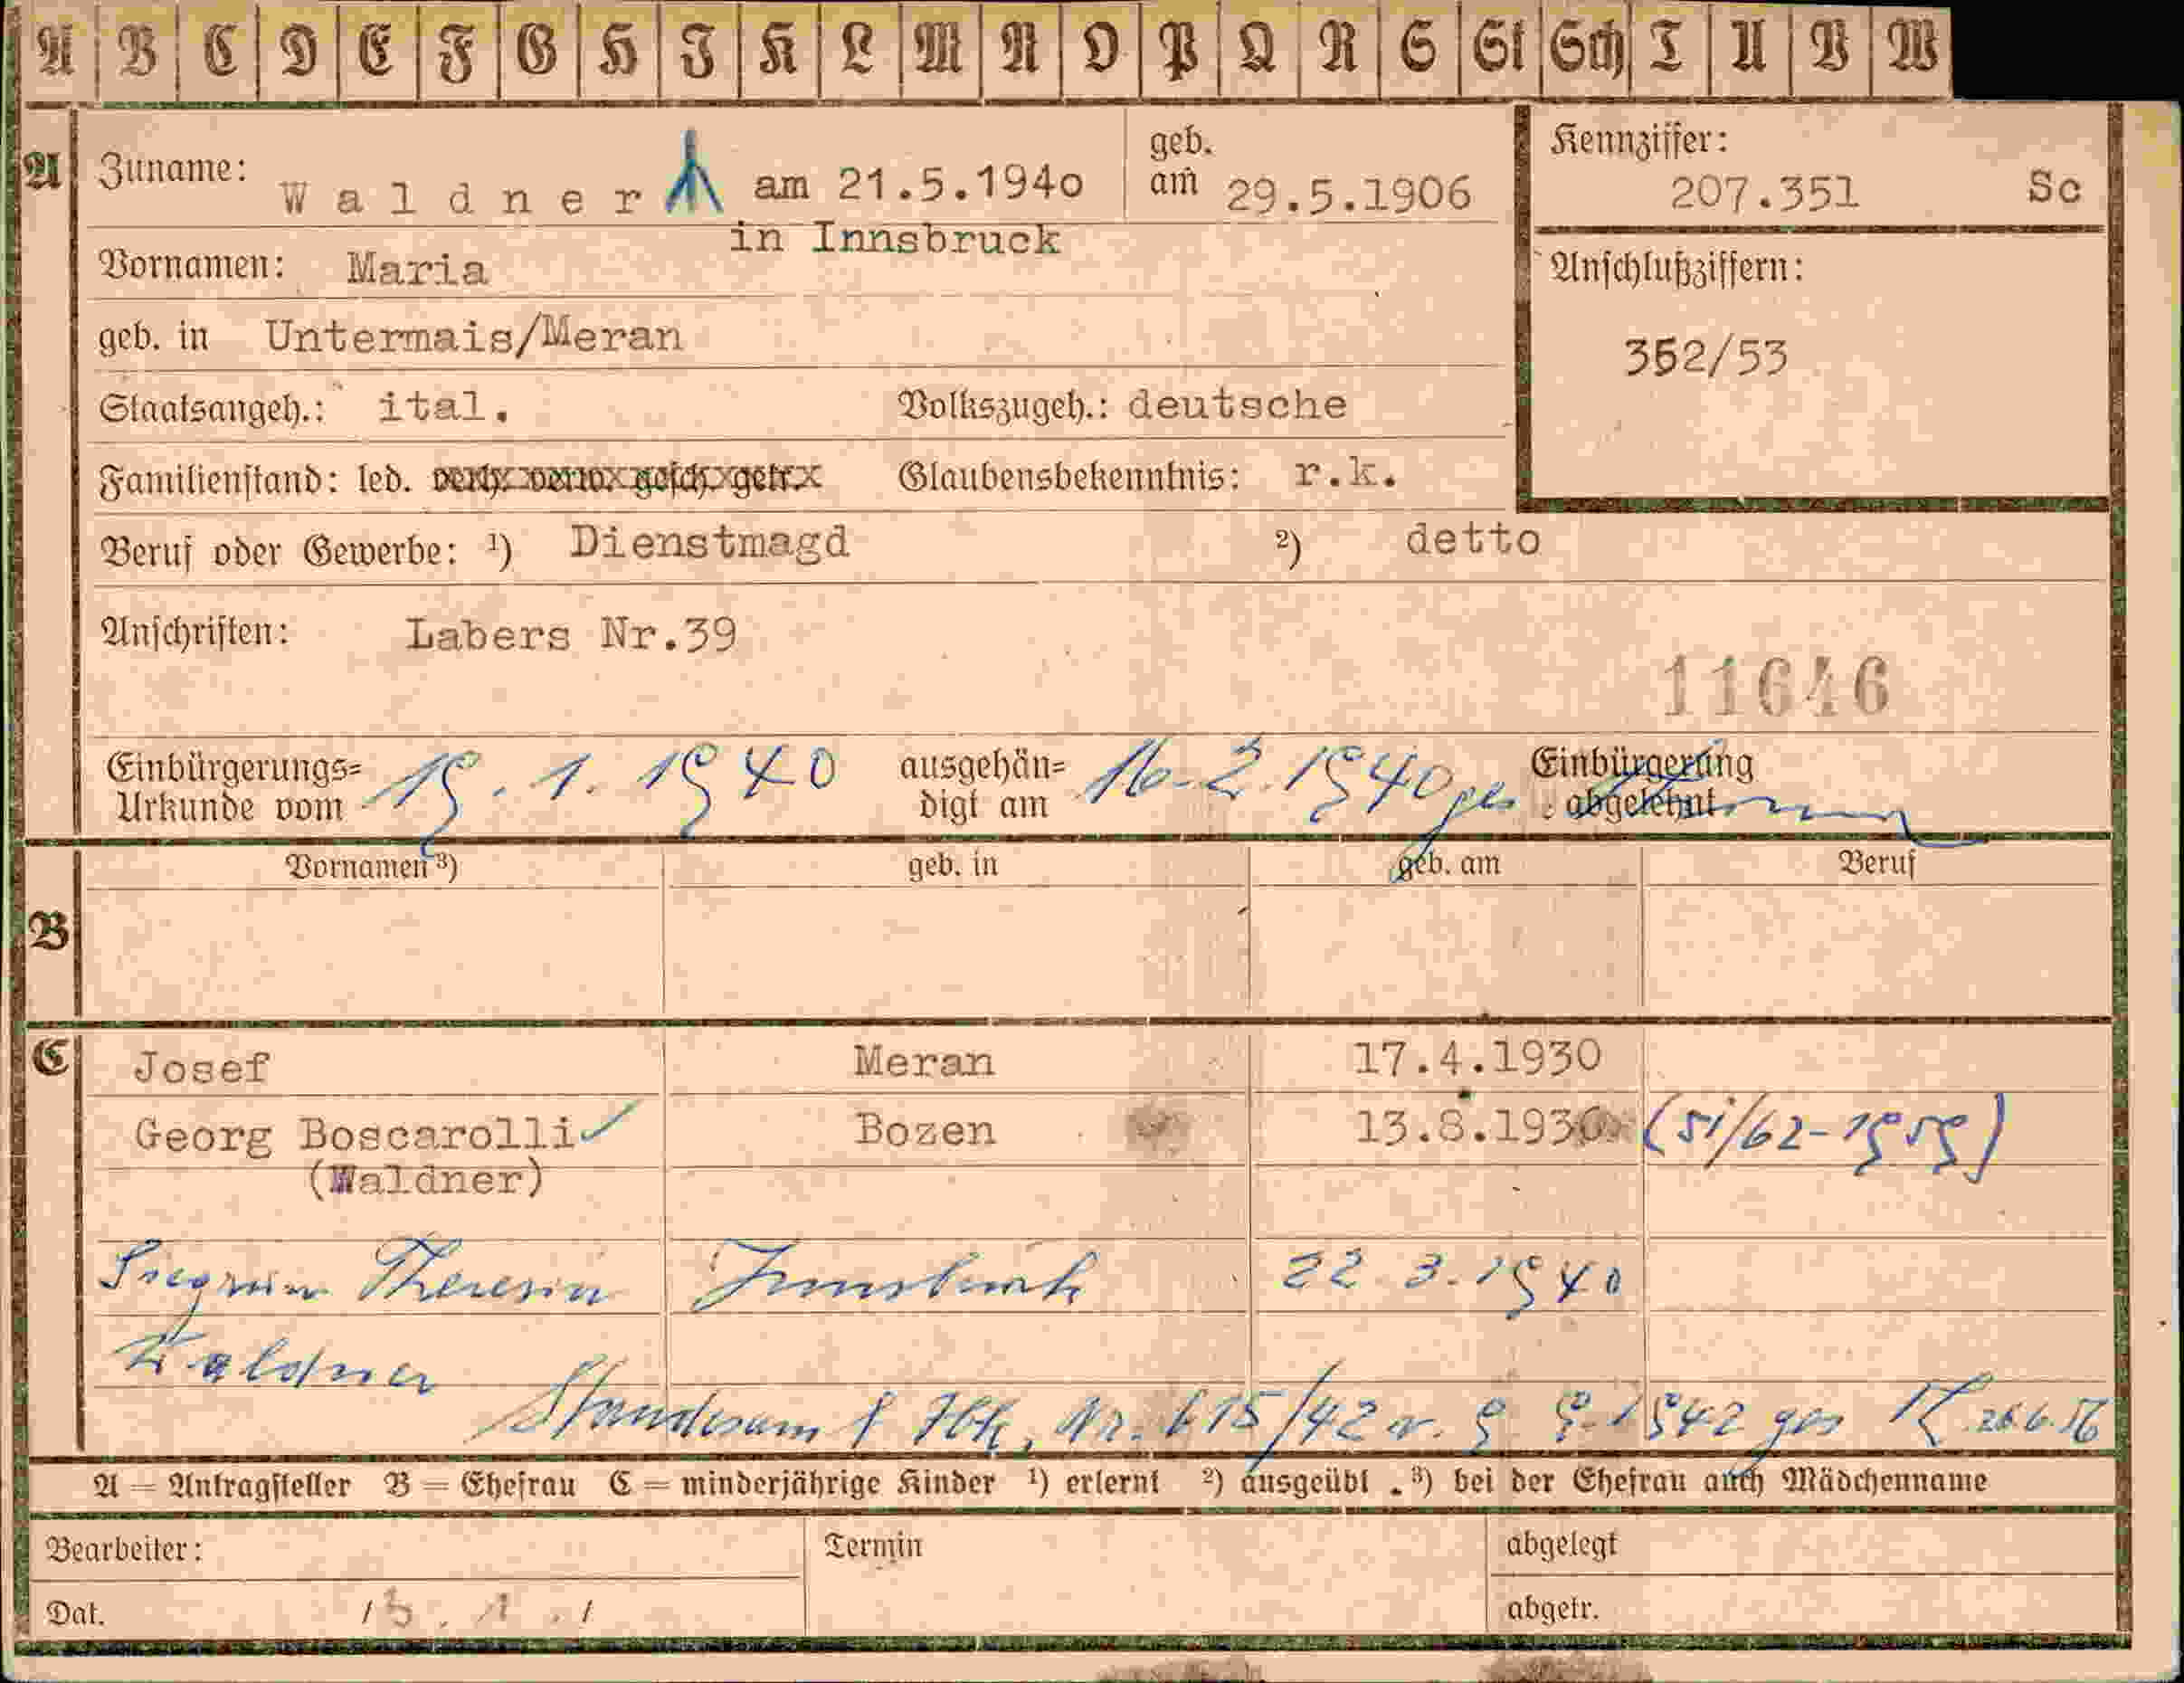 A B C D E F G H J K L M N O P Q R S St Sch T U V W
A Zuname: Waldner ᛦ am 21.5.1940 geb. am 29.5.1906
in Innsbruck
Kennziffer:
207.351 Sc
Vornamen: Maria
Anschlußziffern:
352/53
geb. in Untermais/Meran
Staatsangeh.: ital. Volkszugeh.: deutsche
Familienstand: led. verh. verw. gesch. getr. Glaubensbekenntnis: r.k.
Beruf oder Gewerbe: ¹) Dienstmagd ²) detto
Anschriften: Labers Nr.39
11646
Einbürgerungs= Urkunde vom 19.1.1940 ausgehän= digt am 16.2.1940 ges Einbürgerung abgelehnt
Vornamen ³) geb. in geb. am Beruf
B
C Josef Meran 17.4.1930
Georg Boscarolli ✓ Bozen 13.8.1936 (51/62-1959)
(Waldner)
Theresia Innsbruck 22.3.1940
Waldner
Standesamt Ibk, Nr. 615/42 v. 9.9.1942 ges 26.6.56
A = Antragsteller B = Ehefrau C = minderjährige Kinder ¹) erlernt ²) ausgeübt. ³) bei der Ehefrau auch Mädchenname
Bearbeiter: Termin abgelegt
Dat. abgetr.